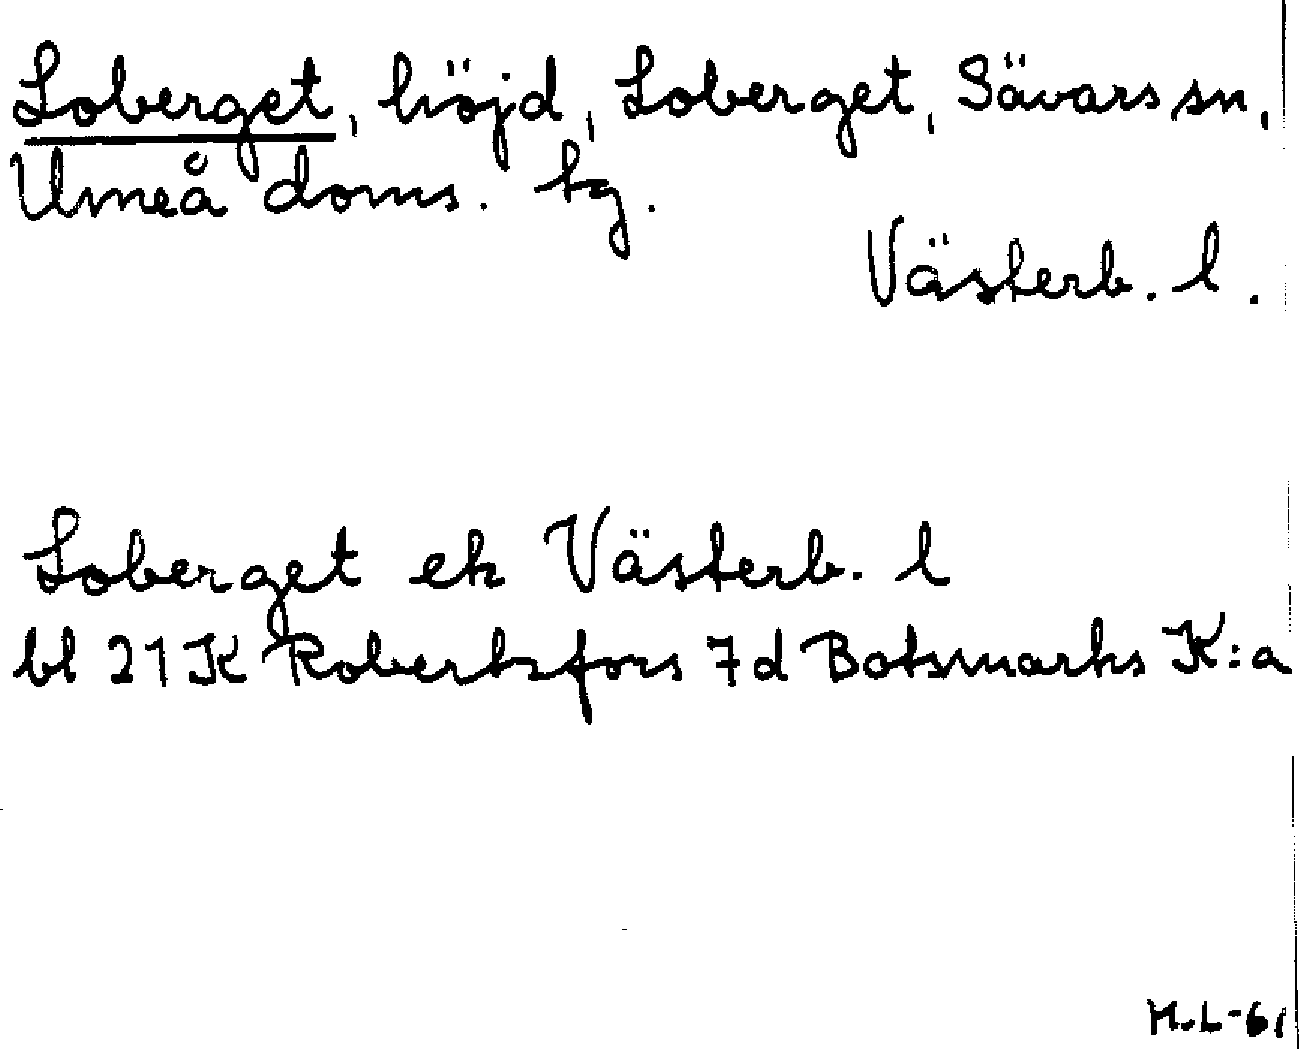 Loberget, höjd, Loberget, Sävars sn,
Umeå doms. tg.
Västerb. l.
Loberget ek Västerb. l
bl 21K Robertsfors 7d Botsmarks K:a
H.L-61